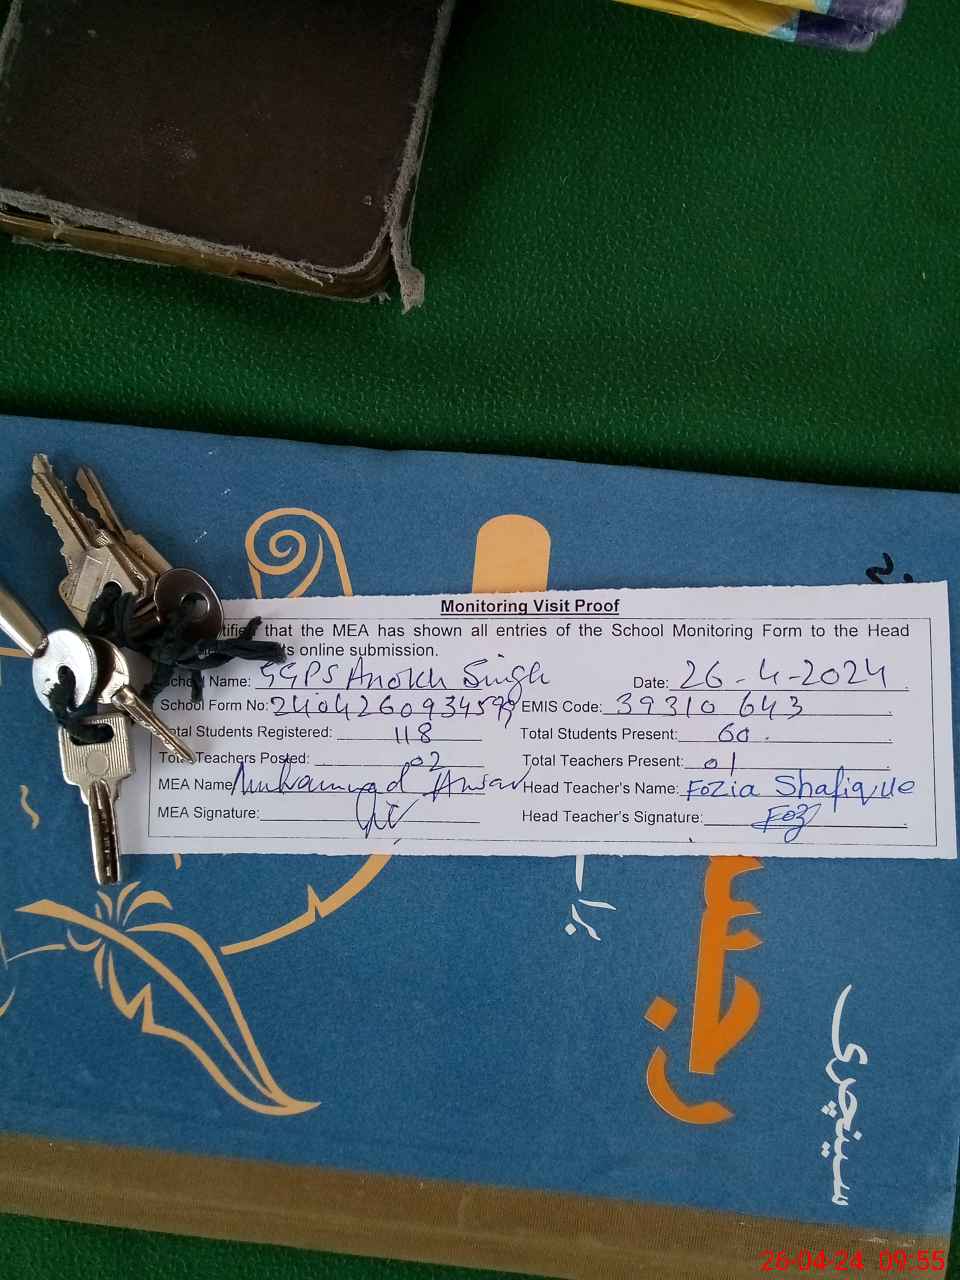 Monitoring Visit Proof
that the MEA has shown all entries of the School Monitoring Form to the Head
online submission.
School Name: GGPS Anokh Singh Date: 26-4-2024
School Form No: EMIS Code: 39310643
Total Students Registered: 118 Total Students Present: 60
Total Teachers Posted: 02 Total Teachers Present: 01
MEA Name Muhammad Anwar Head Teacher's Name: Fozia Shafique
MEA Signature: Head Teacher's Signature: Foz
برائے
رجسٹر
سینچری
26-04-24 09:55